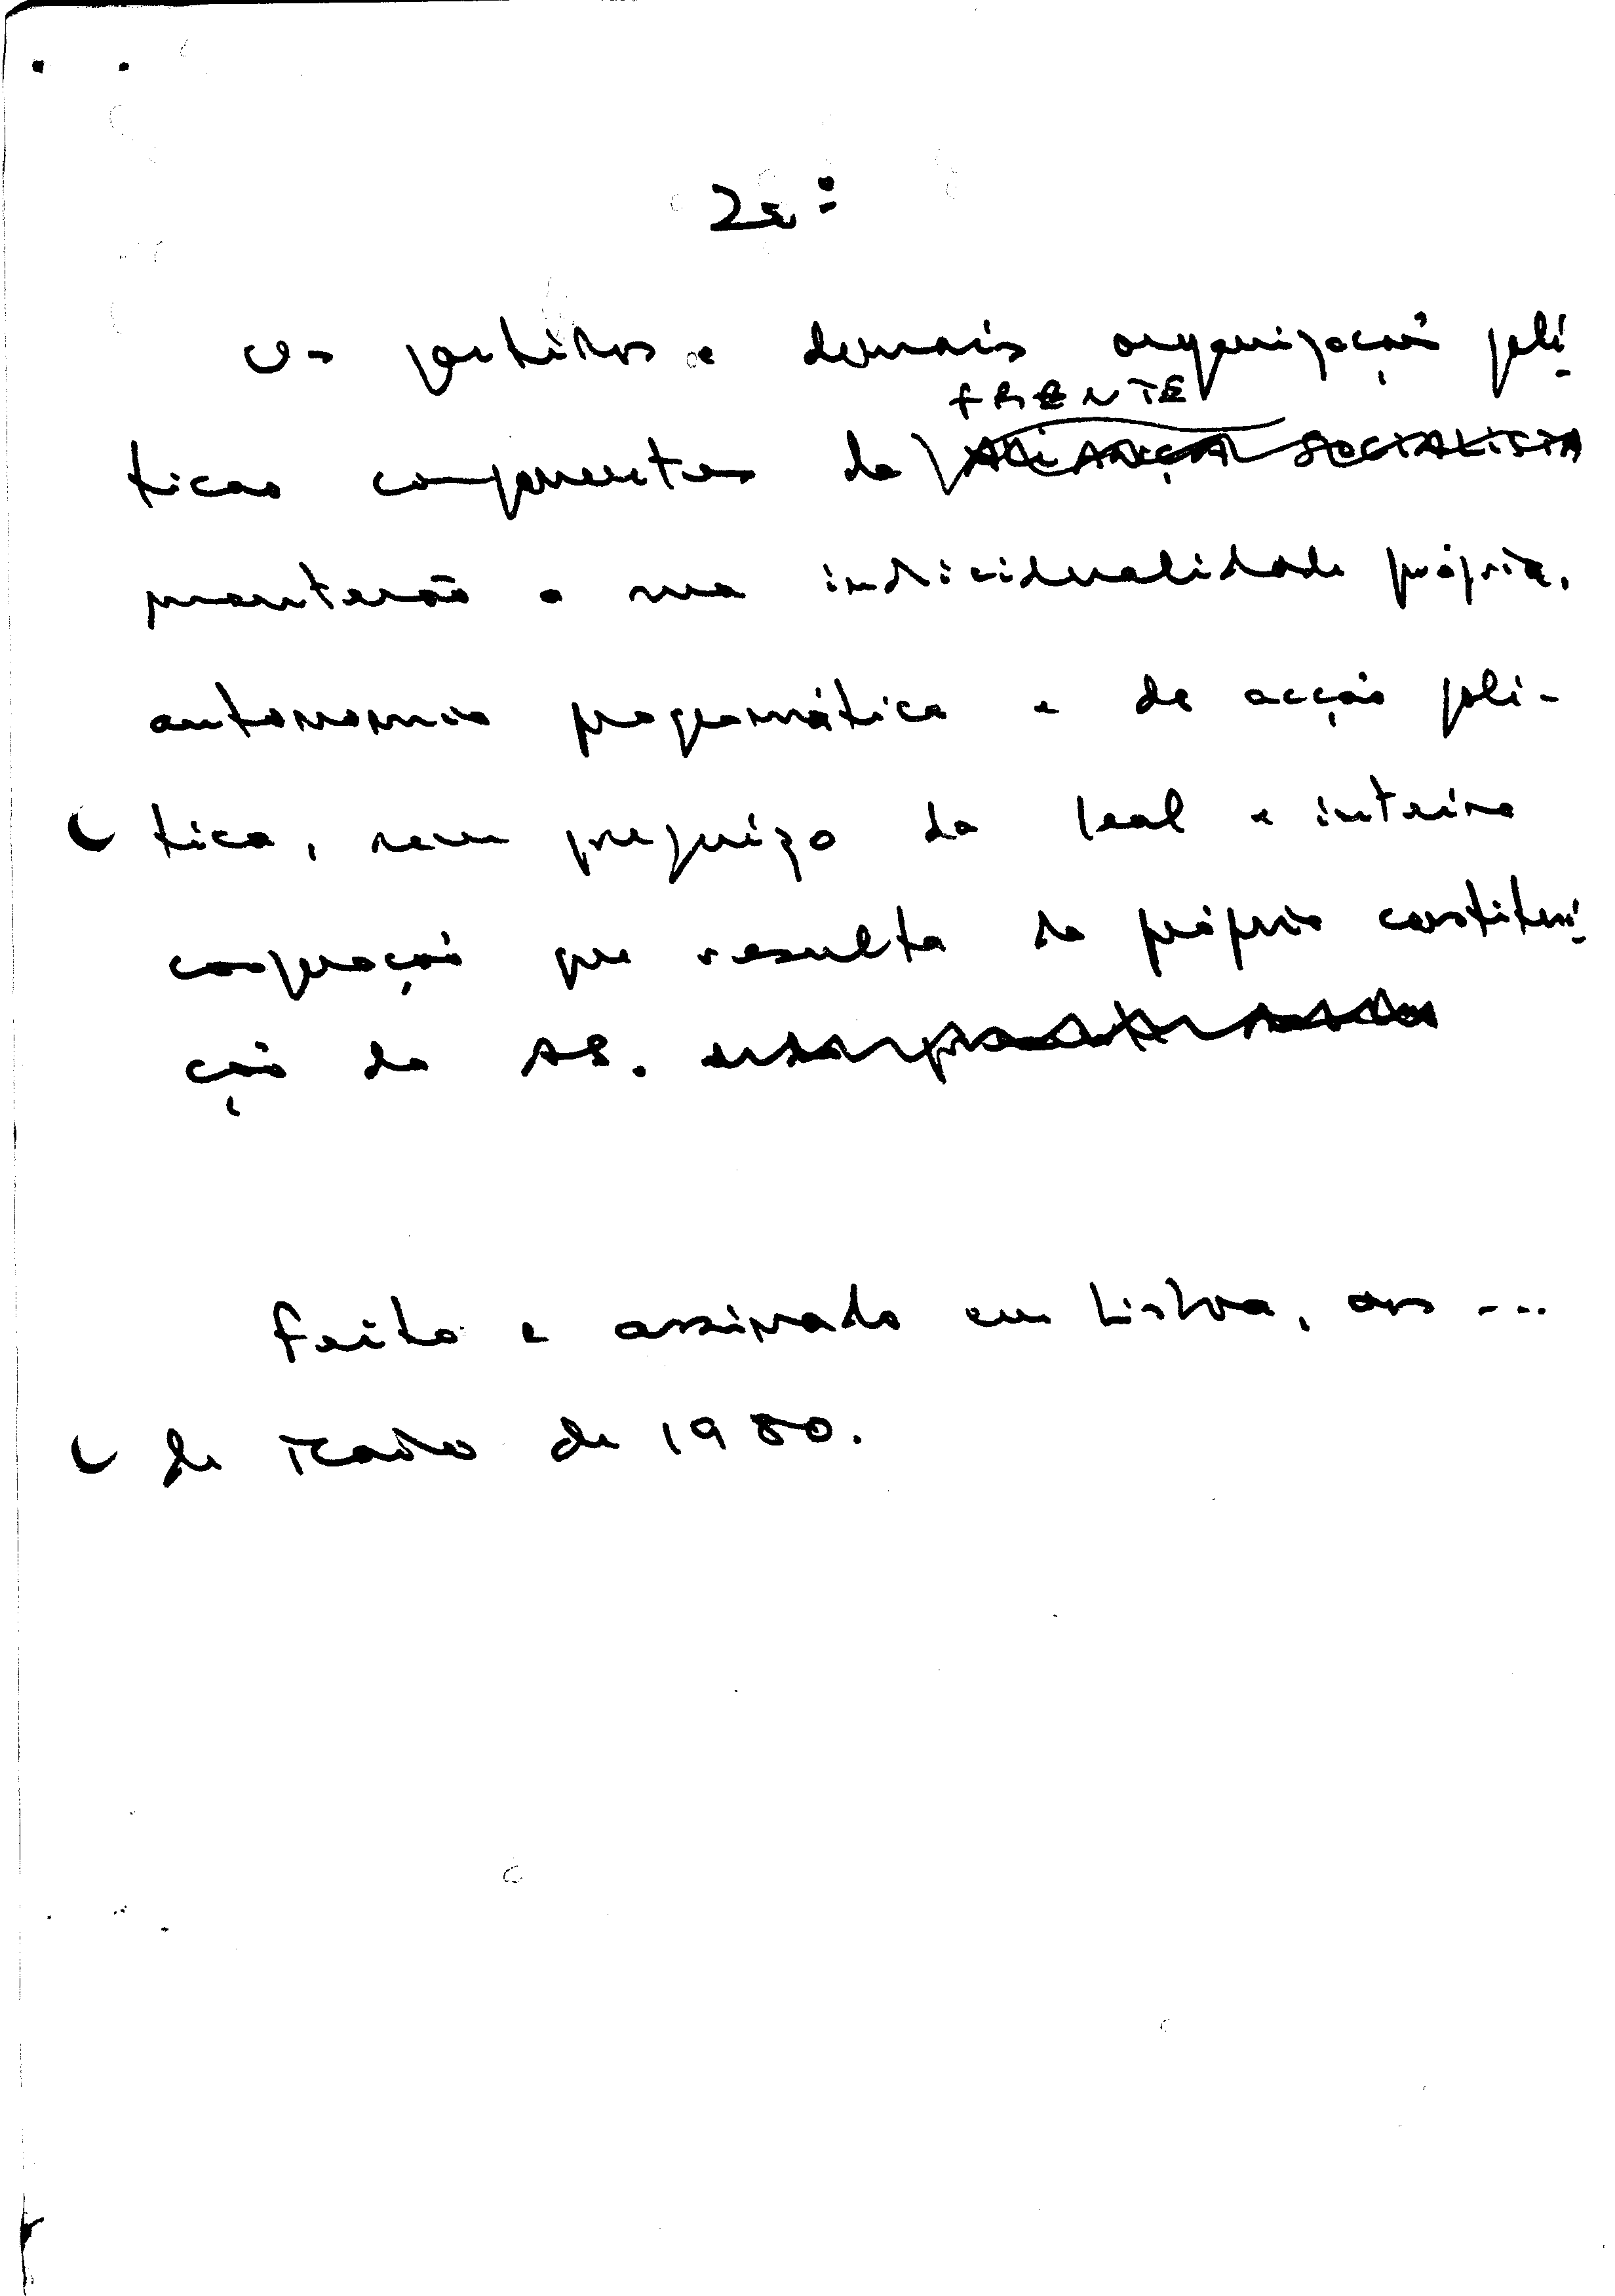 Os partidos e demais organizações polí-
FRENTE
ticas componentes da ALIANÇA SOCIALISTA
manterão a sua individualidade própria,
autonomia programática e de acção polí-
tica, sem prejuízo da leal e inteira
cooperação que resulta da própria constitui-
ção da AS.
Feito e assinado em Lisboa, aos ...
de Maio de 1980.